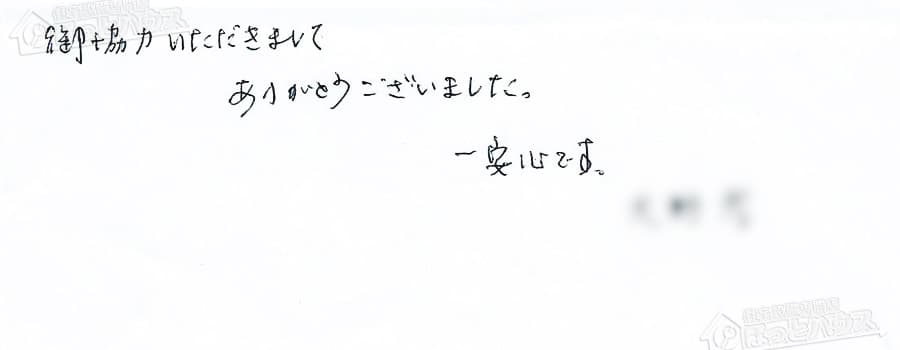 御協力いただきまして
ありがとうございました。
一安心です。
ほっとハウス